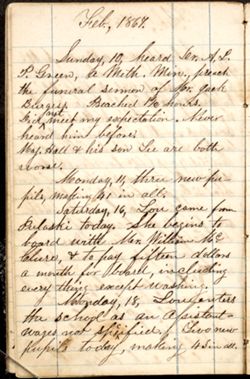 Feb, 1867.
Sunday, 10, heard Dr. A. L.
P. Green, a Meth. Min., preach
the funeral sermon of Mr. Jack
Burgess. Preached 1¾ hours.
Did not meet my expectation. Never
heard him before.
Maj. Hall & his son Lee are both
worse.
Monday, 11, three new pu-
pils, making 41 in all.
Saturday, 16, Lou came from
Pulaski today. She begins to
board with Mrs. William Mc
Clure, & to pay fifteen dollars
a month for board, including
everything except washing.
Monday, 18, Lou enters
the school as an assistant—
wages not specified. Two new
pupils today, making 43 in all.